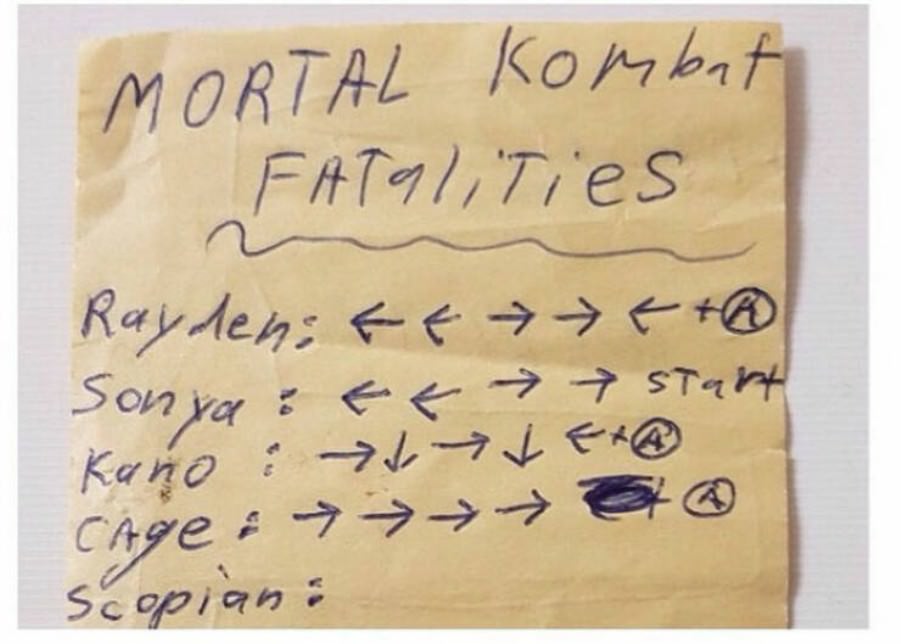 MORTAL Kombat
FATaliTies
Rayden: ← ← → → ← + Ⓐ
Sonya : ← ← → → start
Kano : → ↓ → ↓ ← + Ⓐ
CAge : → → → → + Ⓐ
Scopian :